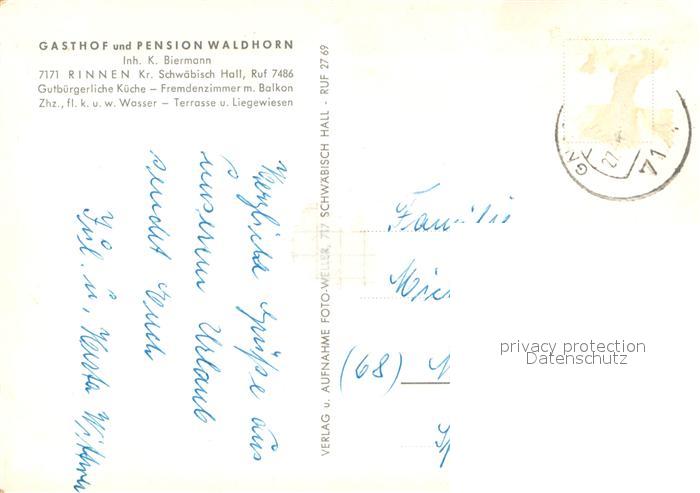 GASTHOF und PENSION WALDHORN
Inh. K. Biermann
7171 RINNEN Kr. Schwäbisch Hall, Ruf 7486
Gutbürgerliche Küche – Fremdenzimmer m. Balkon
Zhz., fl. k. u. w. Wasser – Terrasse u. Liegewiesen
Herzliche Grüße aus
unserem Urlaub
sendet Euch
u. Herta
VERLAG u. AUFNAHME FOTO-WELLER, 717 SCHWÄBISCH HALL - RUF 27 69
71
Familie
(68)
privacy protection
Datenschutz